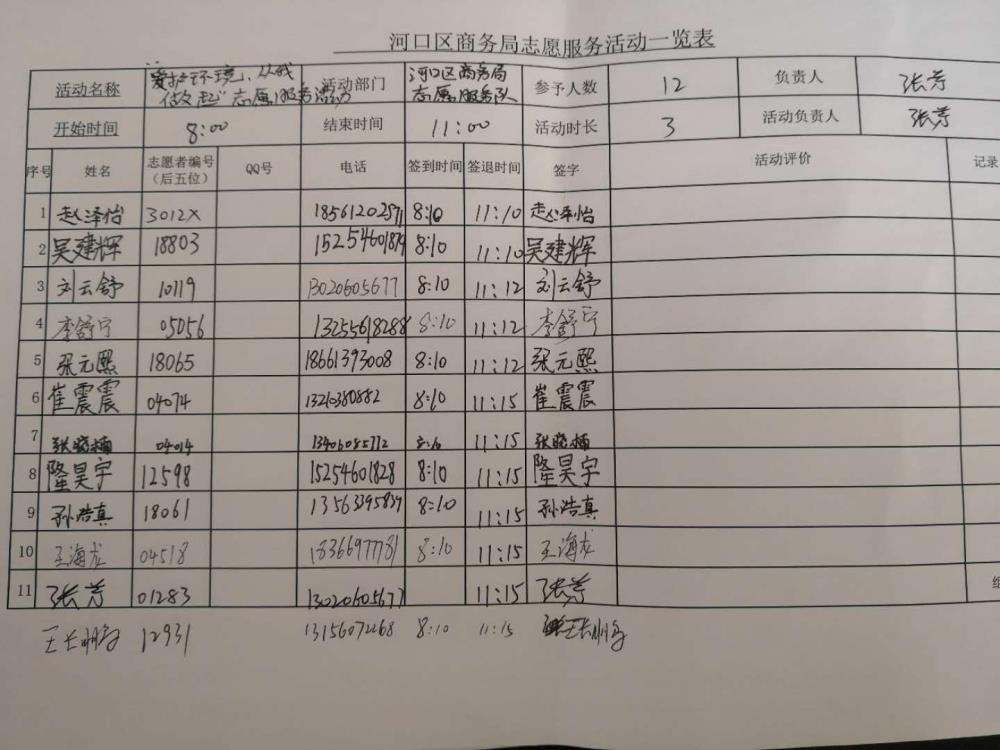 河口区商务局志愿服务活动一览表
活动名称 "爱护环境、从我做起"志愿服务活动 活动部门 河口区商务局志愿服务队 参予人数 12 负责人 张芳
开始时间 8:00 结束时间 11:00 活动时长 3 活动负责人 张芳
序号 姓名 志愿者编号（后五位） QQ号 电话 签到时间 签退时间 签字 活动评价 记录
1 赵泽怡 3012X 18561202571 8:10 11:10 赵泽怡
2 吴建辉 18803 15254601879 8:10 11:10 吴建辉
3 刘云舒 10119 13020605677 8:10 11:12 刘云舒
4 李舒宁 05056 13255618288 8:10 11:12 李舒宁
5 张元熙 18065 18661393008 8:10 11:12 张元熙
6 崔震震 04074 13210380882 8:10 11:15 崔震震
7 张晓楠 04014 13406085772 11:15 张晓楠
8 隆昊宇 12598 15254601828 8:10 11:15 隆昊宇
9 孙浩真 18061 13563395839 8:10 11:15 孙浩真
10 王海龙 04518 18366977781 8:10 11:15 王海龙
11 张芳 01283 13020605677 11:15 张芳
12931 8:10 11:15